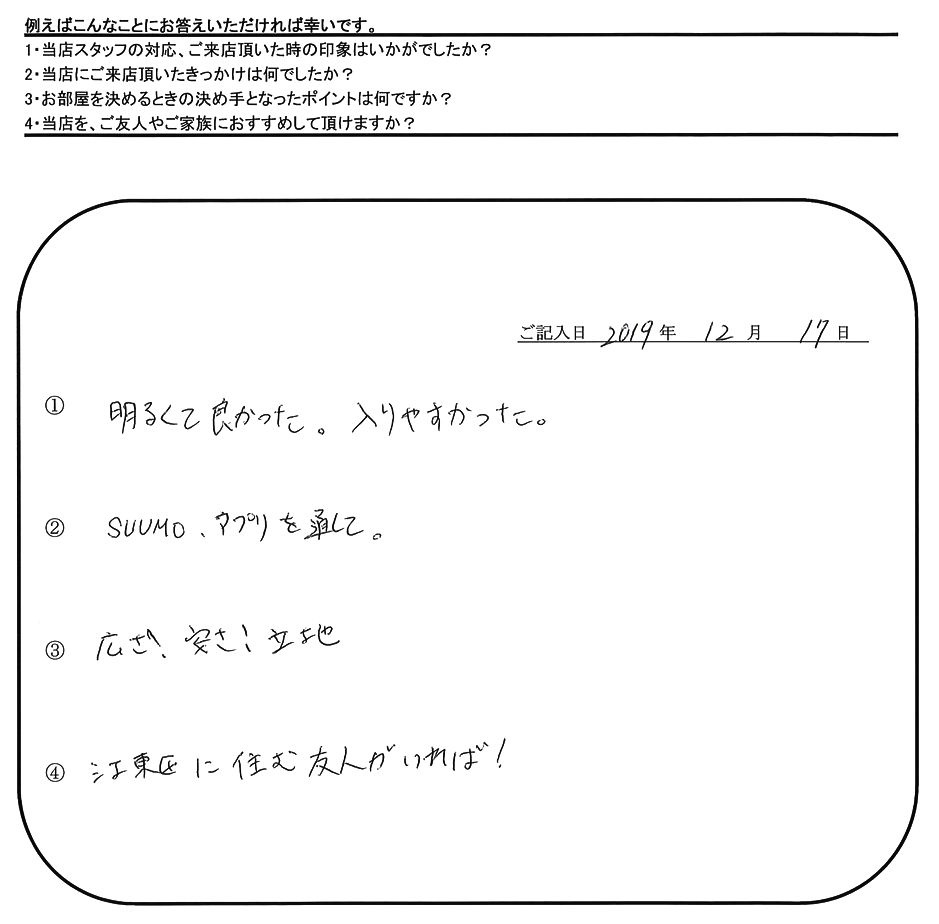 例えばこんなことにお答えいただければ幸いです。
1・当店スタッフの対応、ご来店頂いた時の印象はいかがでしたか？
2・当店にご来店頂いたきっかけは何でしたか？
3・お部屋を決めるときの決め手となったポイントは何ですか？
4・当店を、ご友人やご家族におすすめして頂けますか？
ご記入日 2019年 12月 17日
① 明るくて良かった。入りやすかった。
② SUUMO、アプリを通して。
③ 広さ！安さ！立地
④ 江東区に住む友人がいれば！